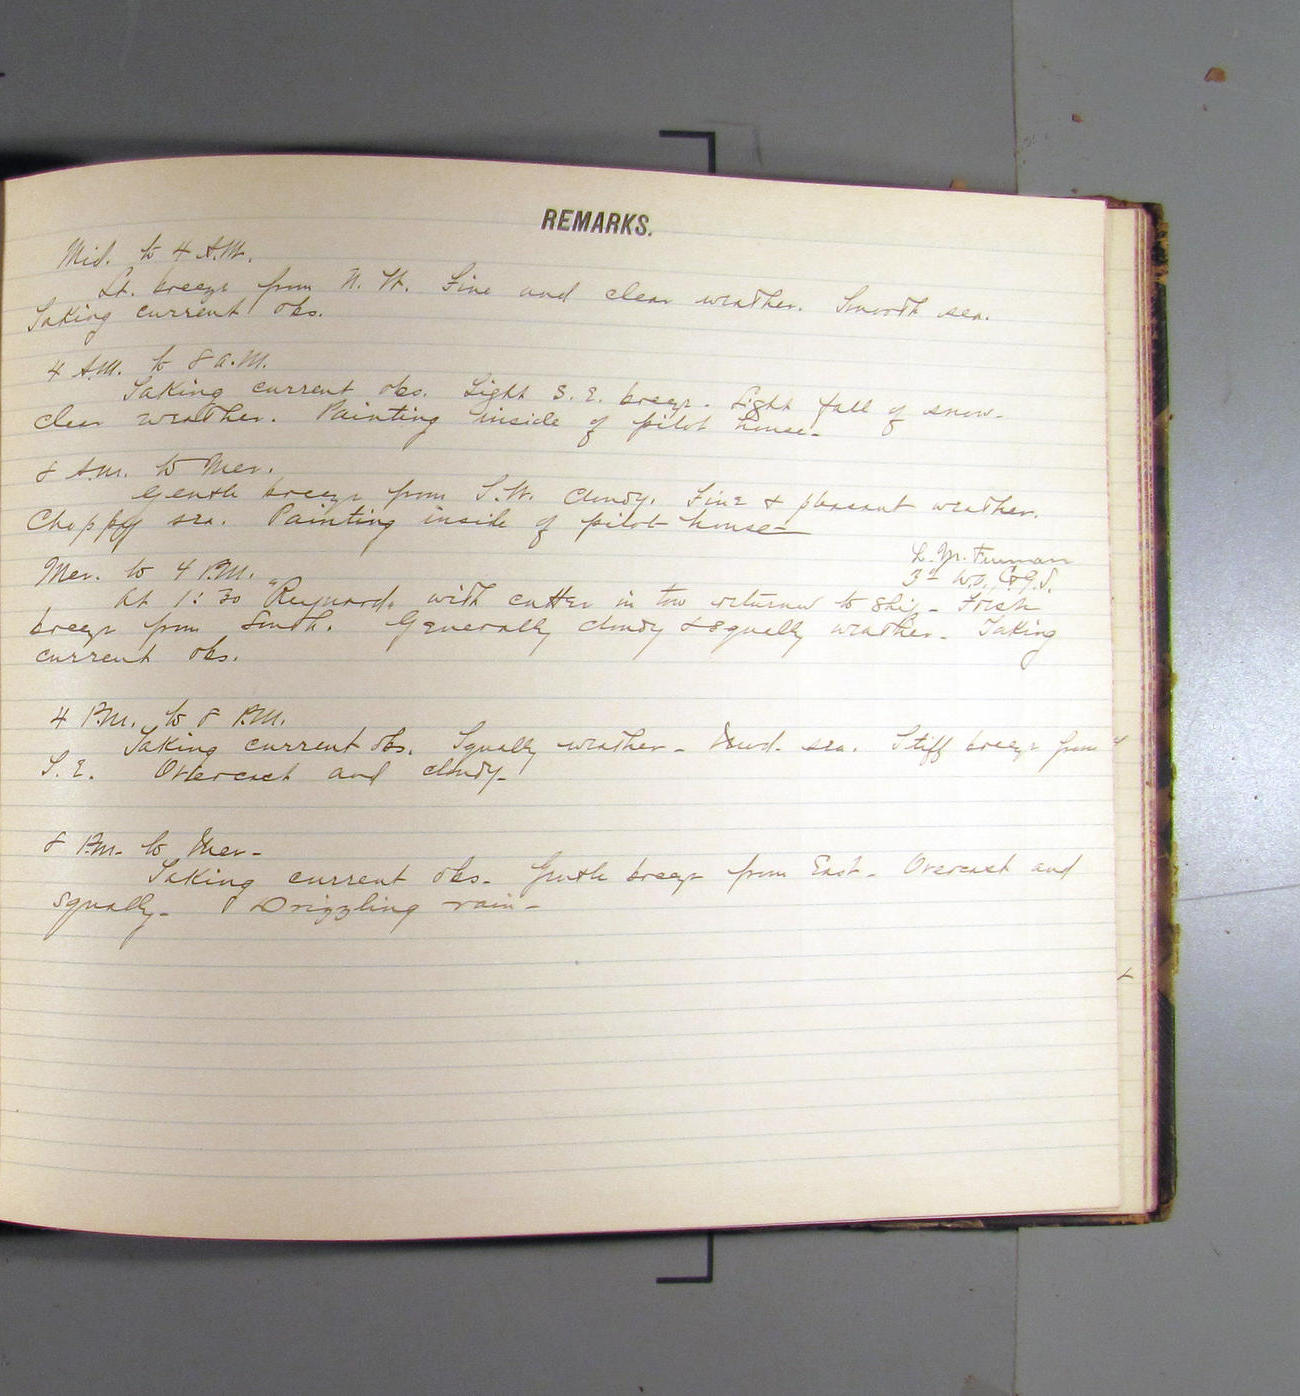 REMARKS.
Mid. to 4 A.M.
Lt. breeze from N. W. Fine and clear weather. Smooth sea.
Taking current obs.
4 A.M. to 8 a.M.
Taking current obs. Light S. E. breeze. Light fall of snow.
clear weather. Painting inside of pilot house.
8 A.m. to Mer.
Gentle breeze from S.W. cloudy. Fine & pleasant weather.
Choppy sea. Painting inside of pilot house.
3d W.O., C&G.S.
Mer. to 4 P.M.
At 1:30 "Reynard" with cutter in tow returned to ship. Fresh
breeze from South. Generally cloudy & squally weather. Taking
current obs.
4 P.m. to 8 P.M.
Taking current obs. Squally weather. Mod. sea. Stiff breeze from
S. E. Overcast and cloudy.
8 P.m. to Mer.
Taking current obs. Gentle breeze from East. Overcast and
squally. Drizzling rain.